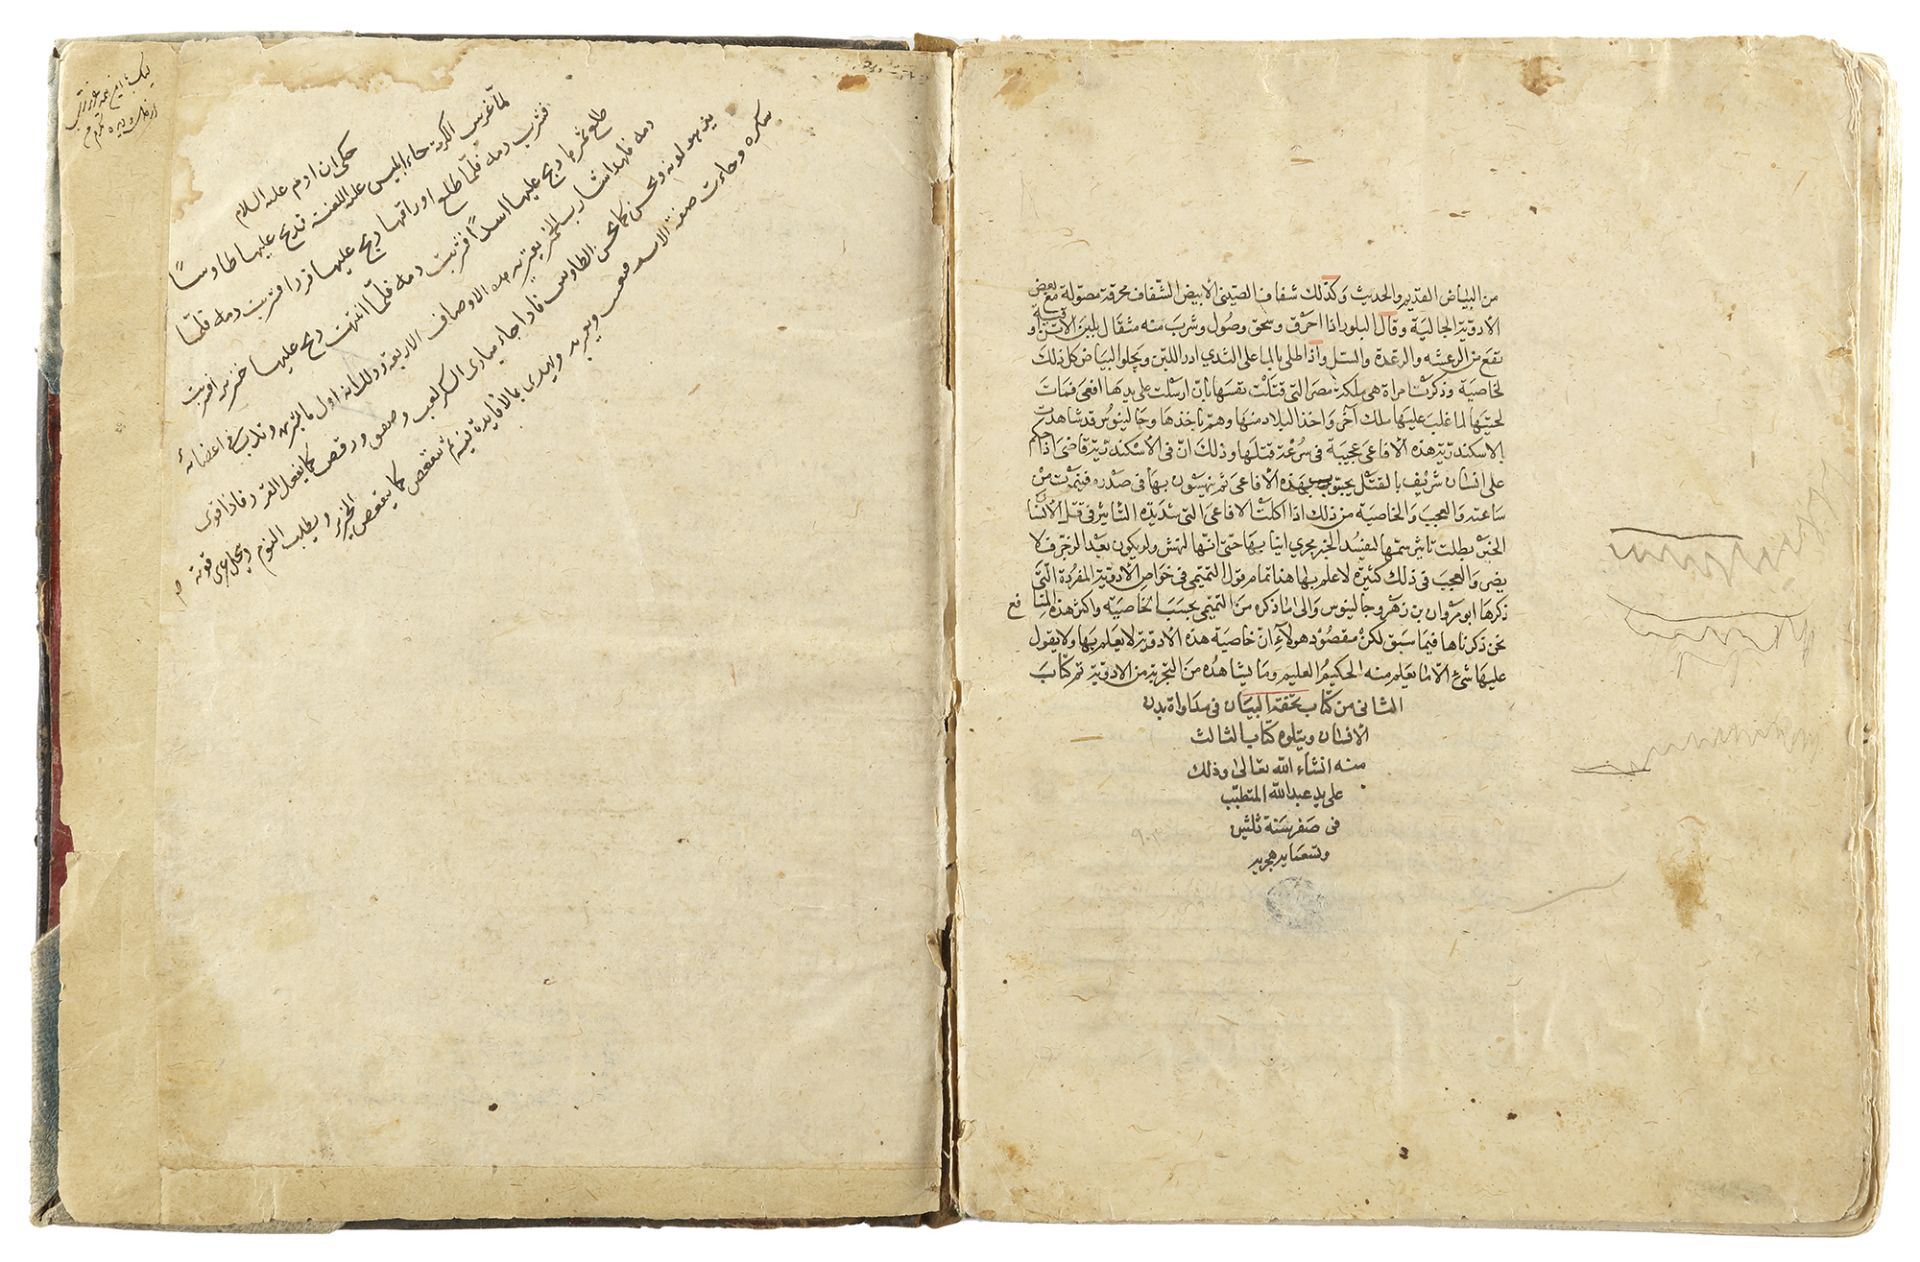 من البياض القديم والحديث وكذلك شفاف الصيني الابيض الشفاف محرقة مصولة مع بعض
الأدوية الجالية وقال البلور اذا احرق وسحق وصول وشرب منه مثقال بلبن الأتن
نفع من الرعشه والرعدة والسل واذا طلي بالماء على الثدي ادر اللبن ويجلو البياض كل ذلك
لخاصية وذكرت امراة هي ملكة مصر التي قتلت نفسها بان ارسلت على يدها افعى فماتت
لحينها لما غلب عليها ملك آخر واخذ البلاد منها وهم باخذها وجالينوس قد شاهدت
بالاسكندرية هذه الأفاعي عجيبة في سرعة قتلها وذلك ان في الأسكندرية قاضي اذا حكم
على انسان شريف بالقتل بهذه الأفاعي ثم نهشون بها في صدره فيموت من
ساعته والعجب والخاصية من ذلك اذا اكلت الافاعي التي شديدة التاثير في قتل الأنسان
الخبز بطلت تاثير سمها ليفسد الخبز مجري انيابها حتى انها لنهش ولو يكون بعد الرجز ف لا
يضر والعجب في ذلك كثيرة لا علم بها هنا تمام قول التميمي في خواص الأدوية المفردة التي
ذكرها ابو مروان بن زهر وجالينوس والى ما ذكره من التميمي بحسب الخاصية واكثر هذه المنافع
نحن ذكرناها فيما سبق لكن مقصود هولاء ان خاصية هذه الأدوية لا يعلم بها ولا يقول
عليها شئ الا ما يعلم منه الحكيم العليم وما يشاهده من التجربة من الادوية تم كتاب
الثاني من كتاب تحفة البيان في مداواة بدن
الأنسان ويتلوه كتاب الثالث
منه انشاء الله تعالى وذلك
على يد عبد الله المتطبب
في صفر سنة ثلثين
وتسعمايه هجريه
٩٣٠
حكي ان ادم عليه السلام
لما غرس الكرمة جاء ابليس عليه اللعنة فذبح عليها طاوسًا
فشرب دمه فلما طلع اوراقها ذبح عليها قردا فشربت دمه فلما
طلع ثمرها ذبح عليها اسدًا فشربت دمه فلما انتهت ذبح عليها خنزيرا فشربت
دمه فلهذا شارب الخمر يعتريه هذه الاوصاف الاربعة وذلك انه اول ما يشربه وتدب في اعضائه
يزهو لونه ويحسن كما يحسن الطاوس فاذا جاء مبادى السكر لعب وصفق ورقص كما يفعل القرد فاذا قوى
سكره وجاءت صفة الاسد فيعبث ويعربد ويهدى بما لا فايدة فيه ثم يتقعص كما يتقعص الخنزير ويطلب النوم ويحل عرى قوته